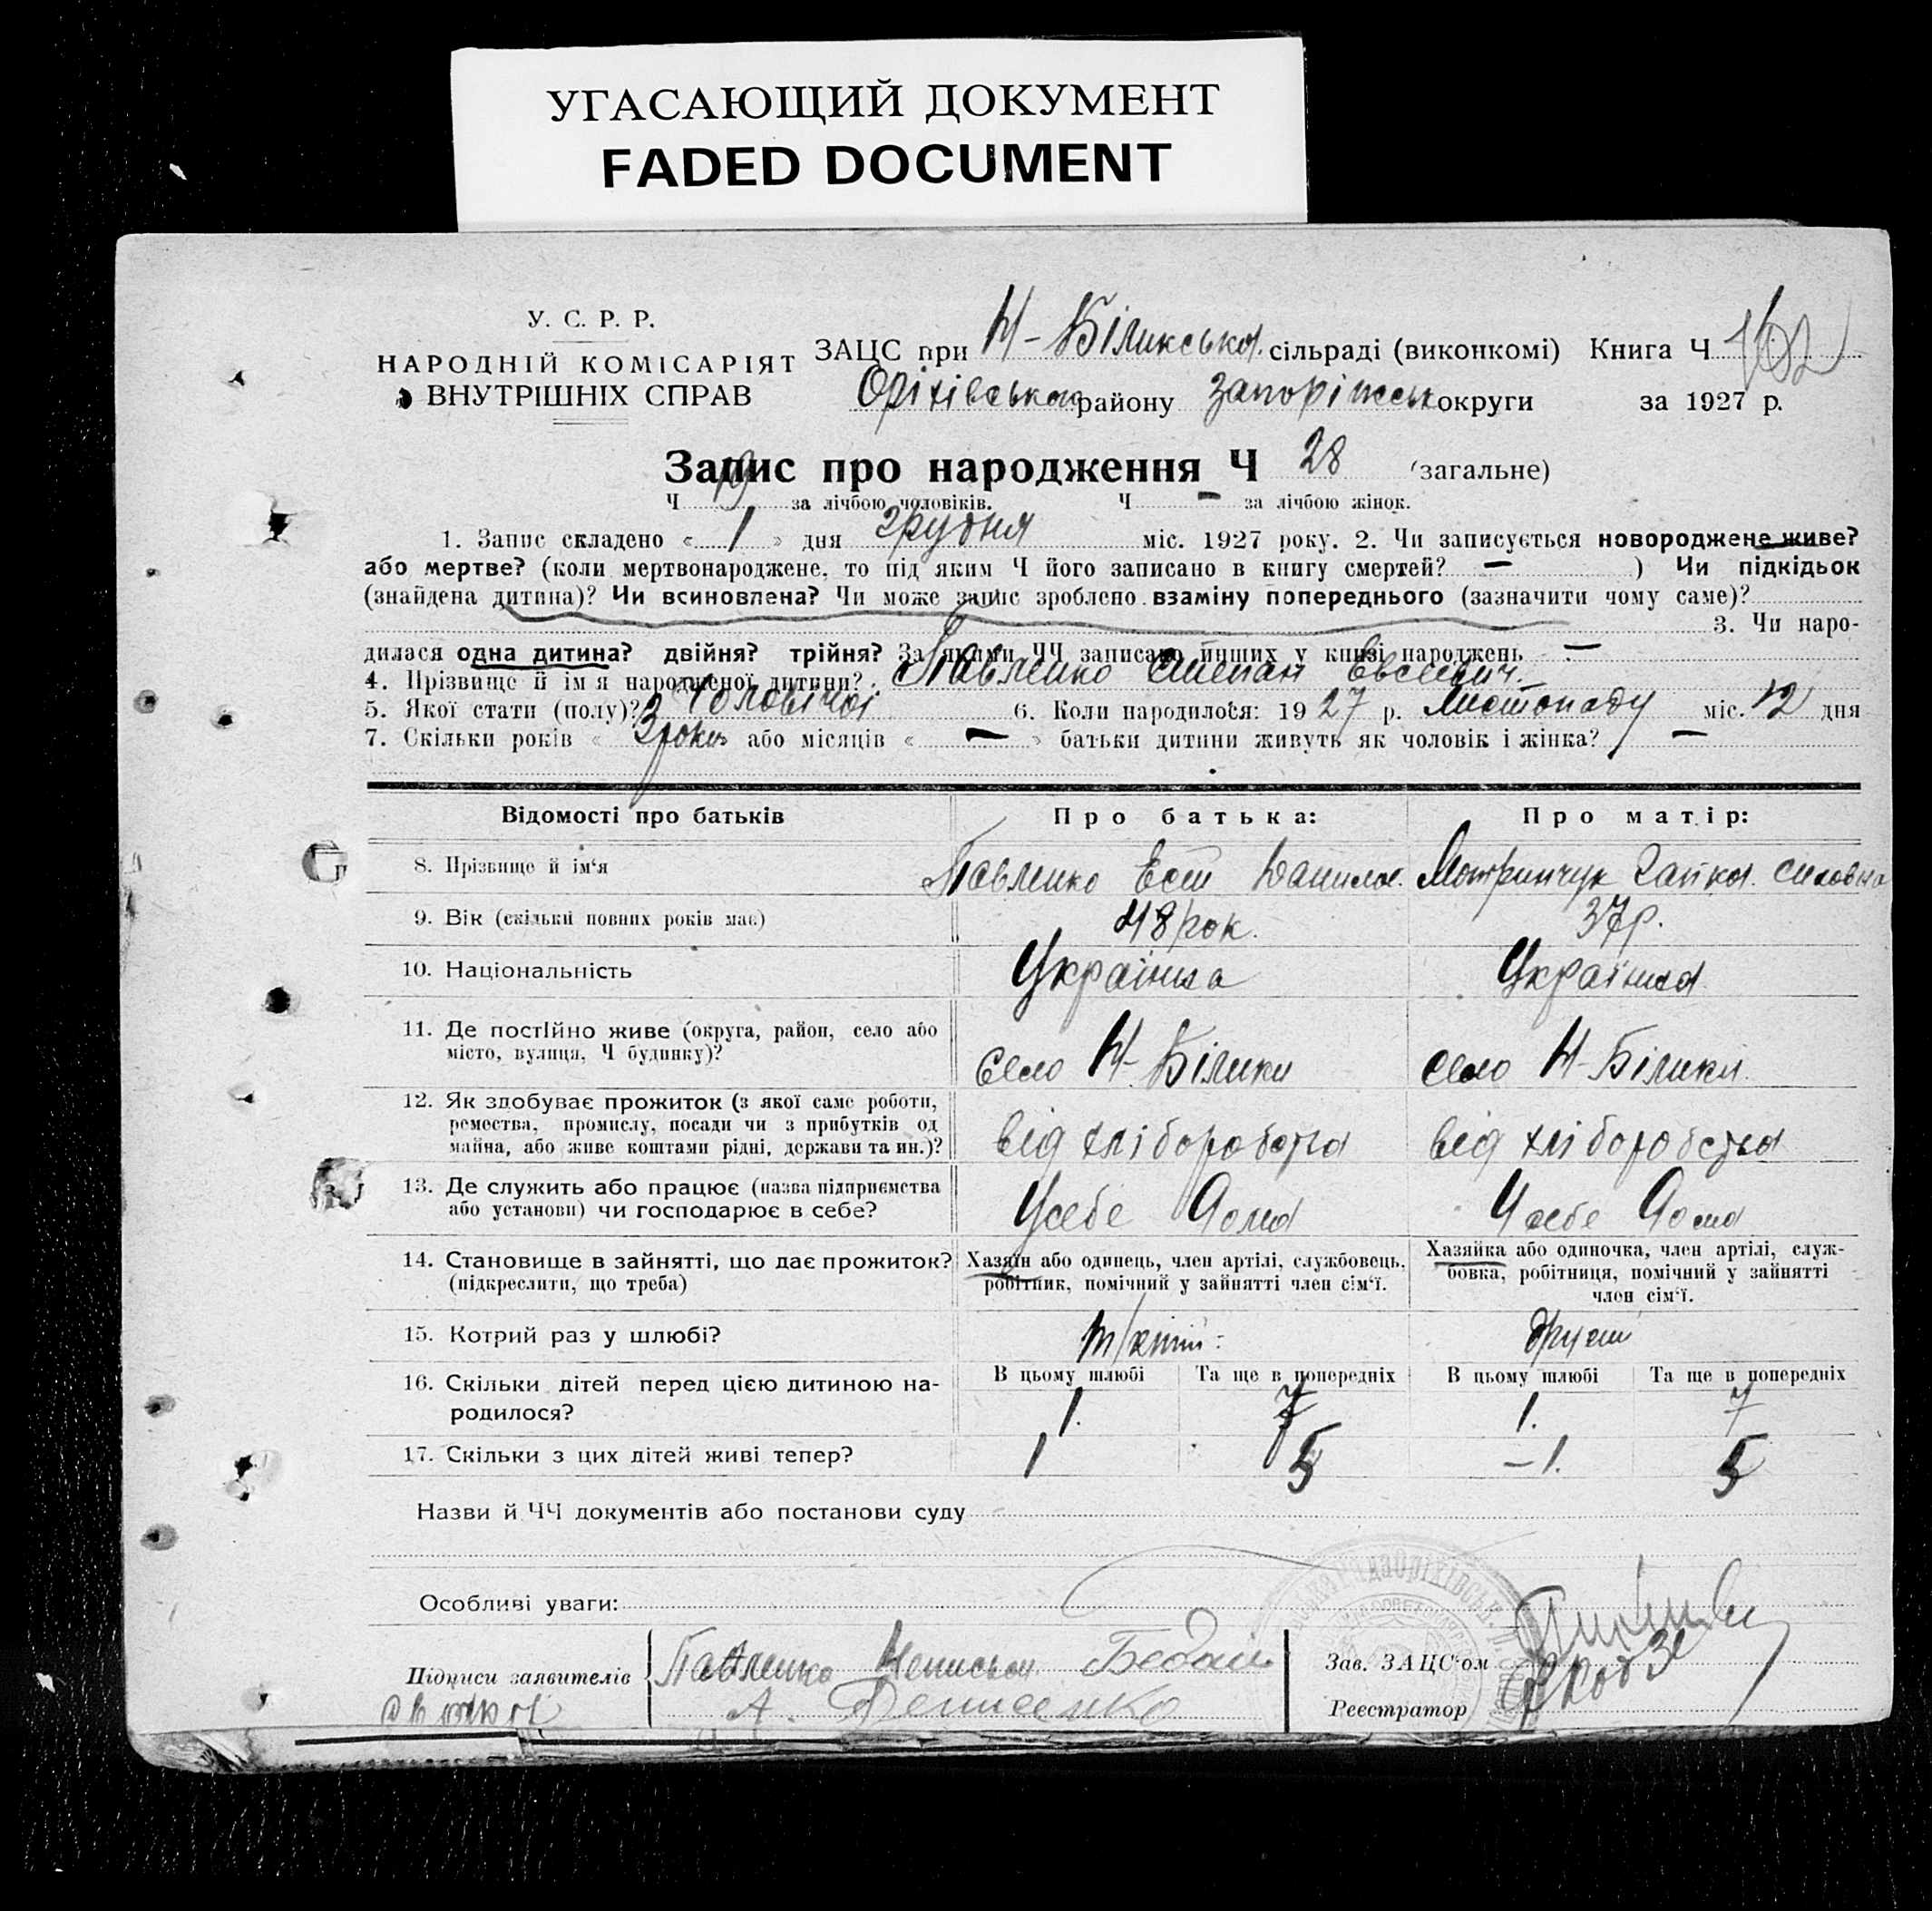 УГАСАЮЩИЙ ДОКУМЕНТ
FADED DOCUMENT
У. С. Р. Р.
НАРОДНІЙ КОМІСАРІЯТ
ВНУТРІШНІХ СПРАВ
ЗАЦС при Н-Біликська сільраді (виконкомі) Книга Ч
Оріхівського району Запоріжськ округи за 1927 р.
Запис про народження Ч 28 (загальне)
Ч 19 за лічбою чоловіків. Ч — за лічбою жінок.
1. Запис складено « 1 » дня грудня міс. 1927 року. 2. Чи записується новороджене живе?
або мертве? (коли мертвонароджене, то під яким Ч його записано в книгу смертей? — ) Чи підкідьок
(знайдена дитина)? Чи всиновлена? Чи може запис зроблено взаміну попереднього (зазначити чому саме)?
3. Чи наро-
дилася одна дитина? двійня? трійня? За якими ЧЧ записано йнших у книзі народжень —
4. Прізвище й ім я народженої дитини? Павленко Степан Евсеевич.
5. Якої стати (полу)? Чоловічої 6. Коли народилося: 1927 р. Листопаду міс. 12 дня
7. Скільки років « 3 роки » або місяців « — » батьки дитини живуть як чоловік і жінка? —
Відомості про батьків Про батька: Про матір:
8. Прізвище й ім‘я Павленко Данилов. Мотринчук Гапка
9. Вік (скільки повних років має) 48 рок. 37 р.
10. Національність Українца Українца
11. Де постійно живе (округа, район, село або
місто, вулиця, Ч будинку)? Село Н-Білики село Н-Білики
12. Як здобуває прожиток (з якої саме роботи,
ремества, промислу, посади чи з прибутків од
майна, або живе коштами рідні, держави та ин.)? від хліборобства від хліборобства
13. Де служить або працює (назва підприємства
або установи) чи господарює в себе? Усебе дома Усебе дома
14. Становище в зайнятті, що дає прожиток?
(підкреслити, що треба)
Хазяїн або одинець, член артілі, службовець,
робітник, помічний у зайнятті член сім‘ї.
Хазяйка або одиночка, член артілі, служ-
бовка, робітниця, помічний у зайнятті
член сім‘ї.
15. Котрий раз у шлюбі? третій другий
В цьому шлюбі Та ще в попередніх В цьому шлюбі Та ще в попередніх
16. Скільки дітей перед цією дитиною на-
родилося? 1. 7 1. 7
17. Скільки з цих дітей живі тепер? 1 5 – 1. 5
Назви й ЧЧ документів або постанови суду
Особливі уваги:
Підписи заявителів Павленко
А. Денисенко
Зав. ЗАЦС‘ом
Реєстратор